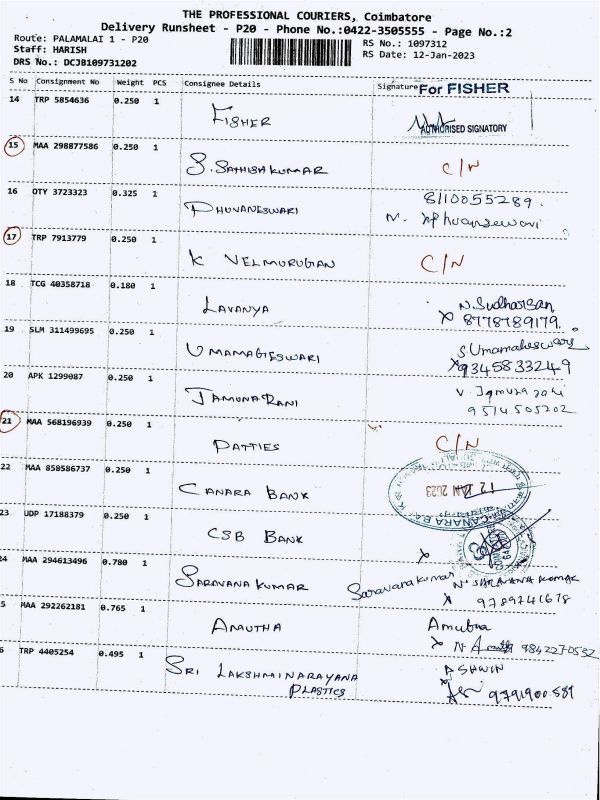 THE PROFESSIONAL COURIERS, Coimbatore
Delivery Runsheet - P20 - Phone No.:0422-3505555 - Page No.:2
Route: PALAMALAI 1 - P20
RS No.: 1097312
Staff: HARISH
RS Date: 12-Jan-2023
DRS No.: DCJB109731202
S No Consignment No Weight PCS Consignee Details Signature For FISHER
14 TRP 5854636 0.250 1 FISHER
AUTHORISED SIGNATORY
15 MAA 298877586 0.250 1 S. SATHISH KUMAR C/N
16 OTY 3723323 0.325 1 BHUVANESWARI 8110055289.
17 TRP 7913779 0.250 1 K VELMURUGAN C/N
18 TCG 40358718 0.180 1 LAVANYA N. Sudharsan
X 8778789179.
19 SLM 311499695 0.250 1 UMAMAGESWARI S Umamaheswari
X 9345833249
20 APK 1299087 0.250 1 JAMUNA RANI V. Jamuna rani
9514505202
21 MAA 568196939 0.250 1 PATTIES C/N
22 MAA 858586737 0.250 1 CANARA BANK
12 JAN 2023
23 UDP 17188379 0.250 1 CSB BANK
24 MAA 294613496 0.780 1 SARAVANA KUMAR Saravanakumar N. SARAVANA KUMAR
X 9789741678
5 MAA 292262181 0.765 1 AMUTHA Amutha
X N. Amutha 9842270532
6 TRP 4405254 0.495 1 SRI LAKSHMINARAYANA PLASTICS ASHWIN
9791900589